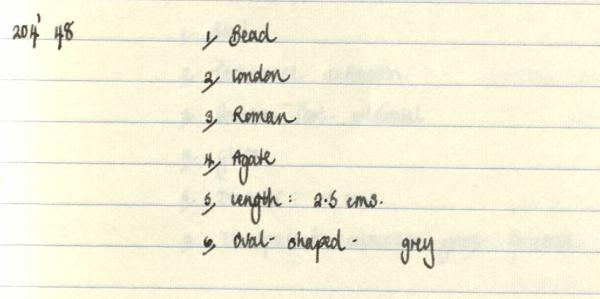 204' 48 1, Bead
2, London
3, Roman
4, Agate
5, Length : 2.5 cms.
6, Oval- shaped - grey